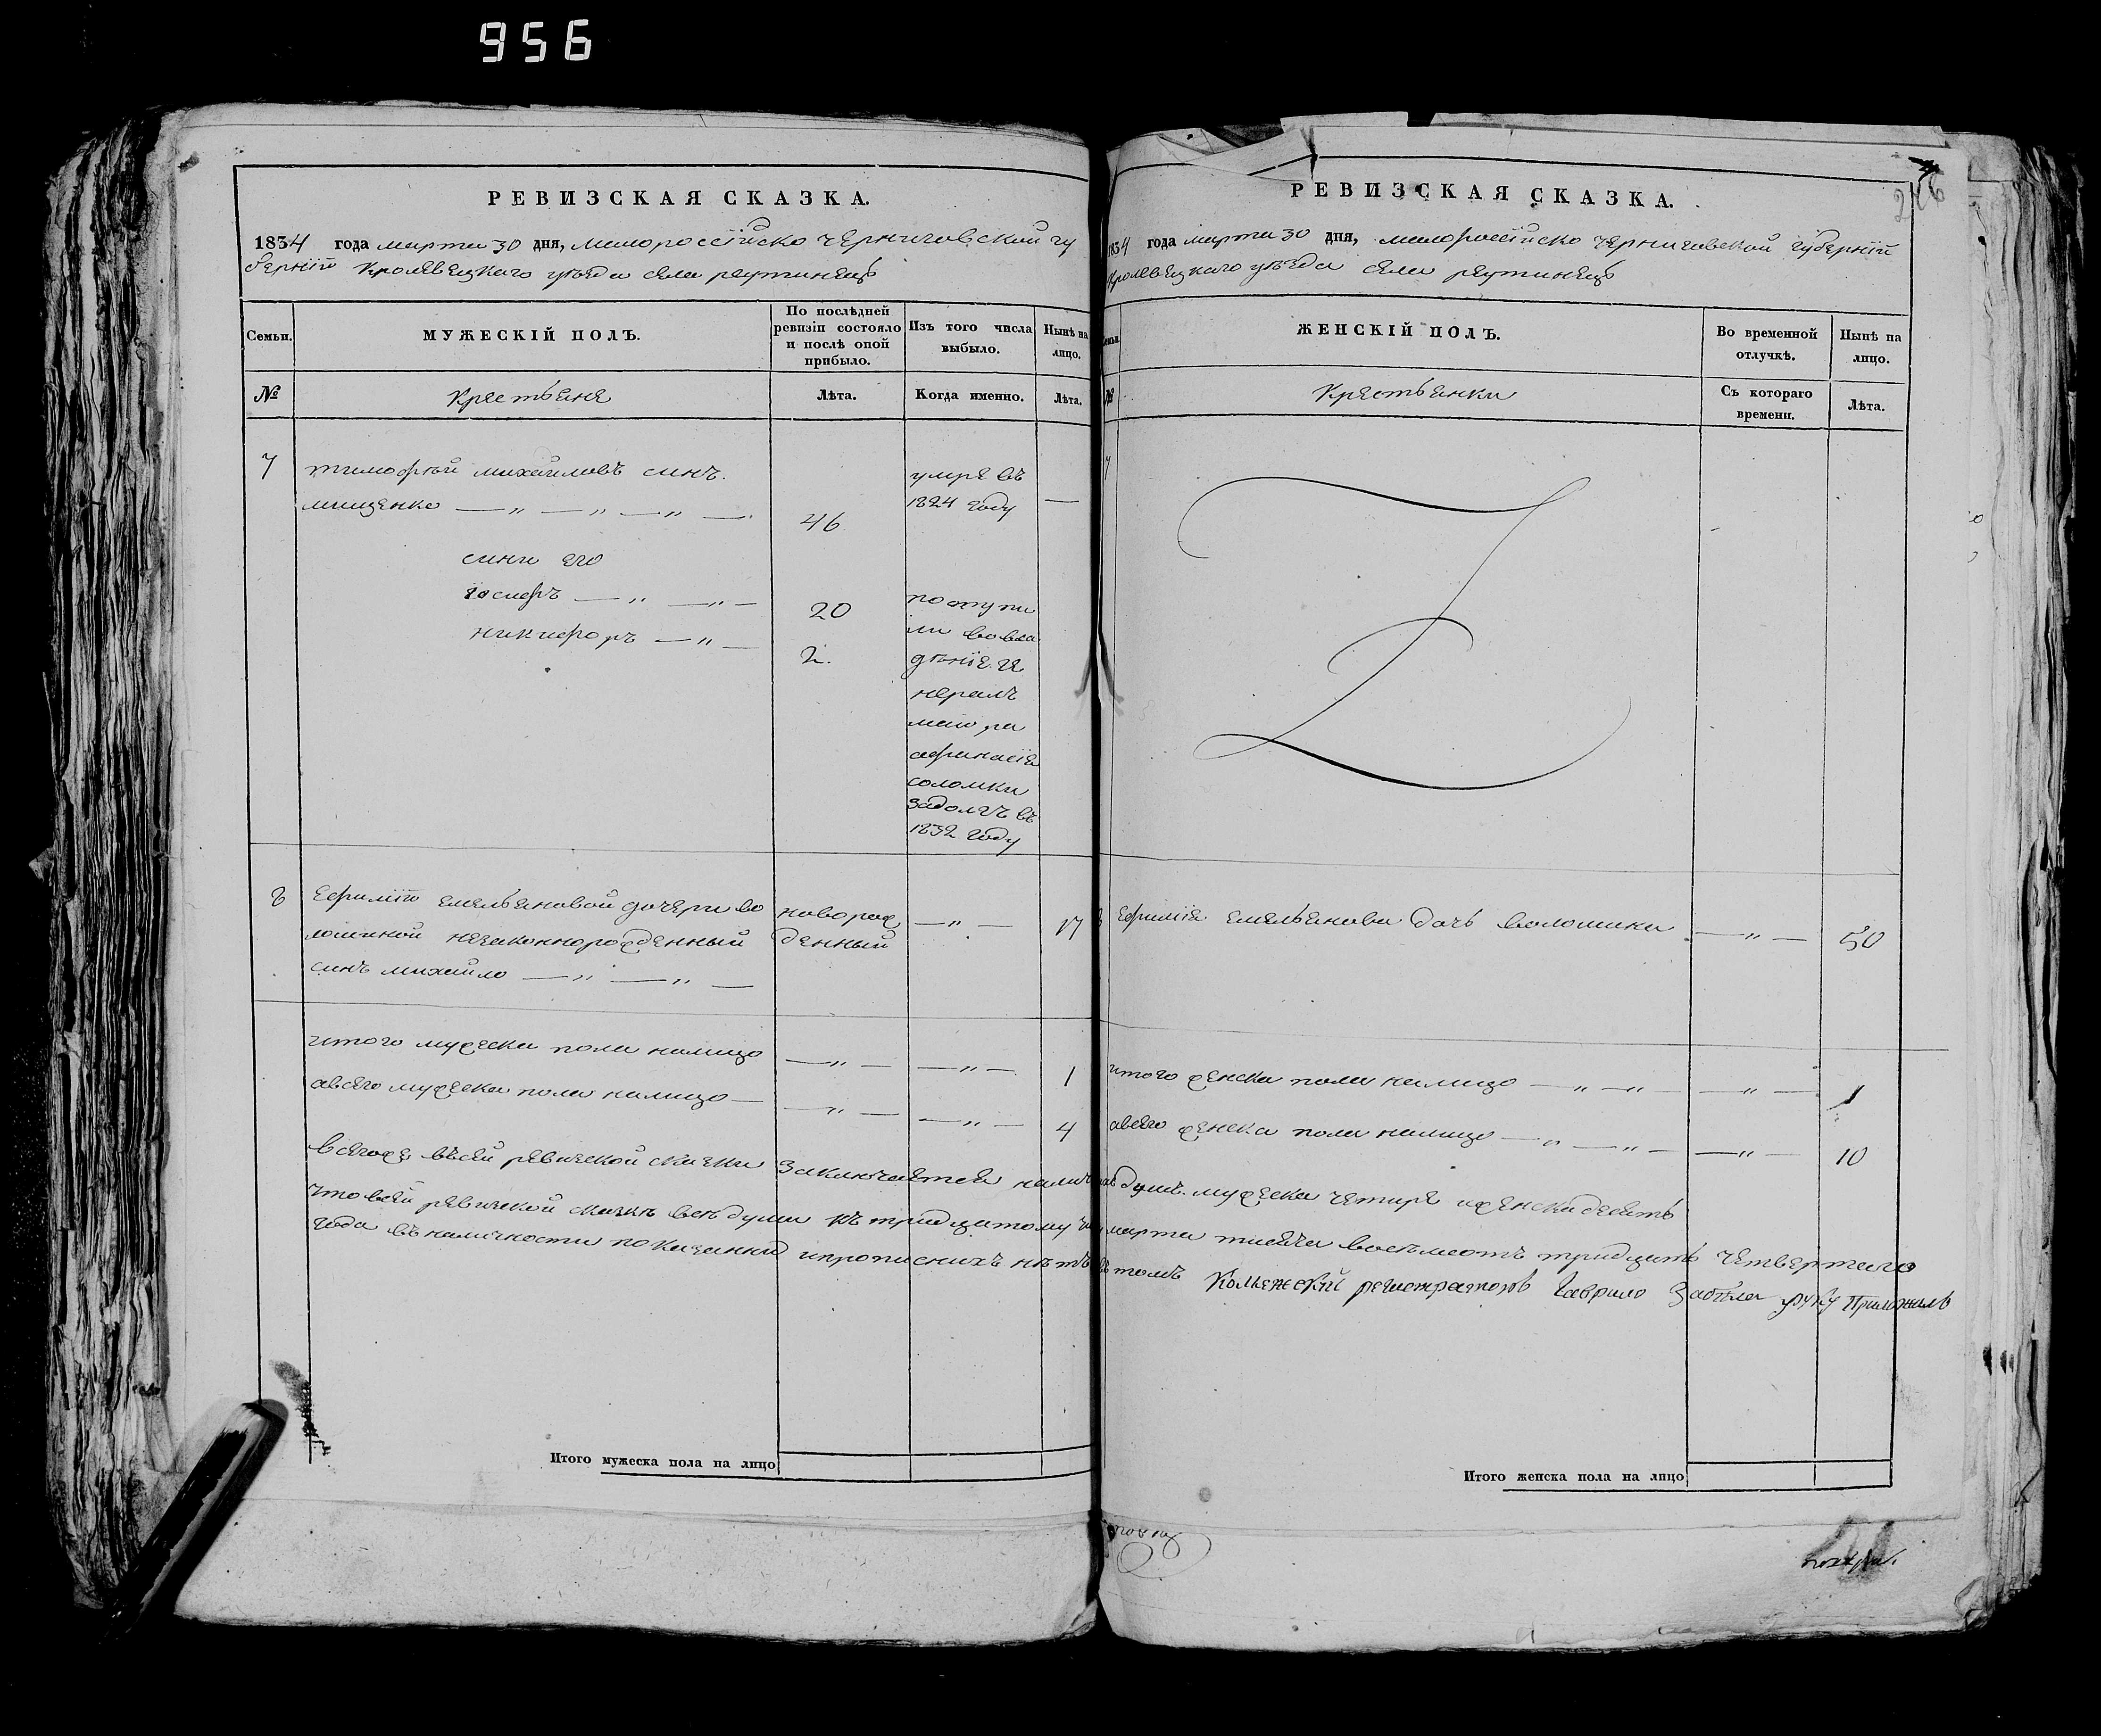 956
РЕВИЗСКАЯ СКАЗКА.
1834 года марта 30 дня, малороссійско черниговской гу
берніи кролевецкаго уезда села реутинецъ
Семьи.
МУЖЕСКІЙ ПОЛЪ.
По послѣдней ревизіи состояло и послѣ оной прибыло.
Изъ того числа выбыло.
Нынѣ на лицо.
№
крестьяне
Лѣта.
Когда именно.
Лѣта.
7
тимофѣй михайловъ синъ
мищенко — „ — „ — „ —
46
умре въ
1824 году
—
сини его
іосифъ — „ — „ —
20
никифоръ — „ —
2.
поступи
ли вовла
дѣніе ге
нералъ
маіора
афанасія
соломки
задолгъ въ
1832 году
8
Ефиміи емельяновой дочери во
лошиной незаконнорожденный
синъ михайло — „ — „ —
новорож
денный
— „ —
17
итого мужеска пола налицо
— „ —
— „ —
1
авсего мужеска пола налицо —
— „ —
— „ —
4
Итого мужеска пола на лицо
РЕВИЗСКАЯ СКАЗКА.
246
1834 года марта 30 дня, малороссійско черниговской губерніи
кролевецкаго уезда села реутинецъ
ЖЕНСКІЙ ПОЛЪ.
Во временной отлучкѣ.
Нынѣ на лицо.
№
крестьянки
Съ котораго времени.
Лѣта.
7
8
Ефимія емельянова дочь волошина
— „ —
50
итого женска пола налицо — „ — „ —
— „ —
1
авсего женска пола налицо — „ — „ —
— „ —
10
Всегоже въсей ревизской сказки заключается душъ мужеска четире иженска десять
что всей ревизской сказкѣ всѣ души къ тридцатому марта тисяча восемьсотъ тридцать четвертаго
года въ наличности показанни ипрописнихъ нѣтъ въ томъ Колежский регистраторъ Гаврило Забѣла руку Приложилъ
Итого женска пола на лицо